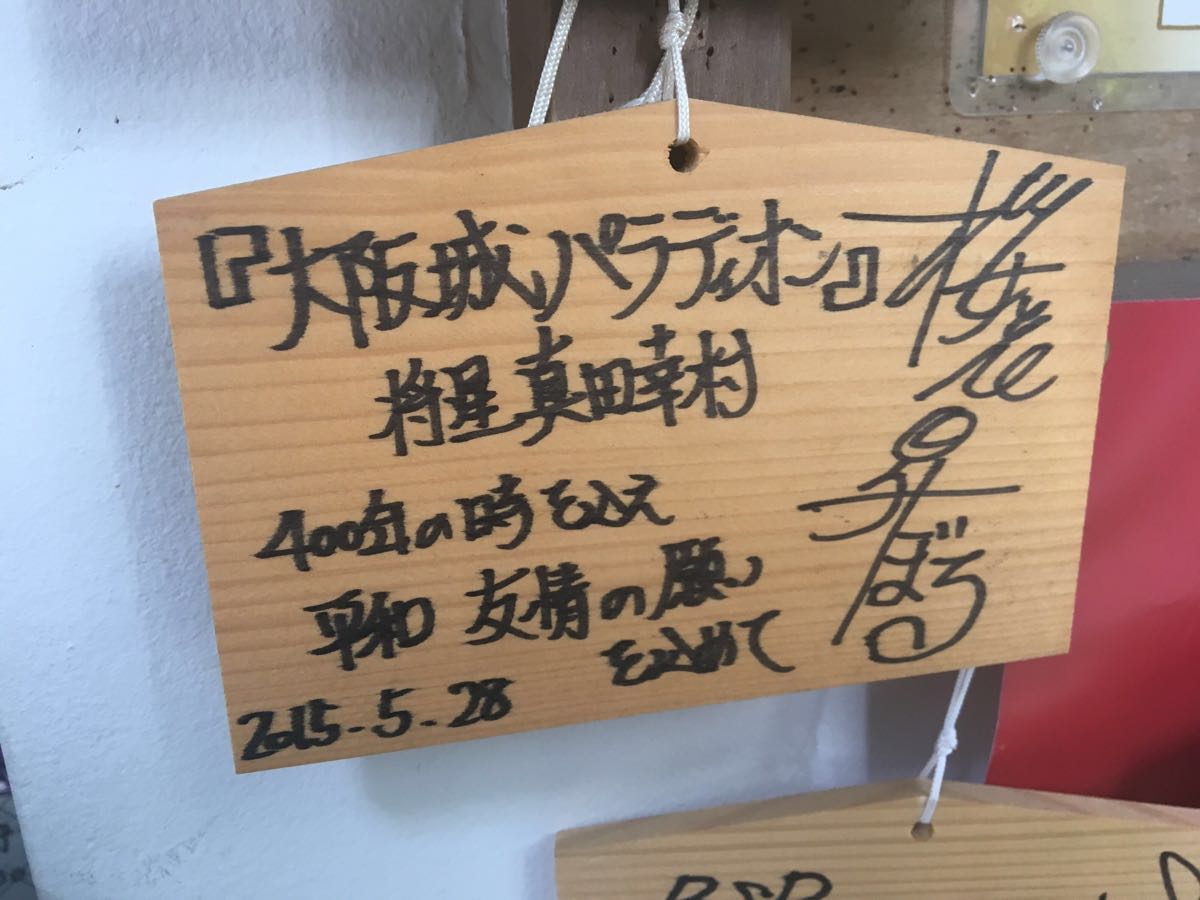 『大阪城パラディオン』
将星真田幸村
400年の時を込え
平和 友情の願い
を込めて
2015.5.28